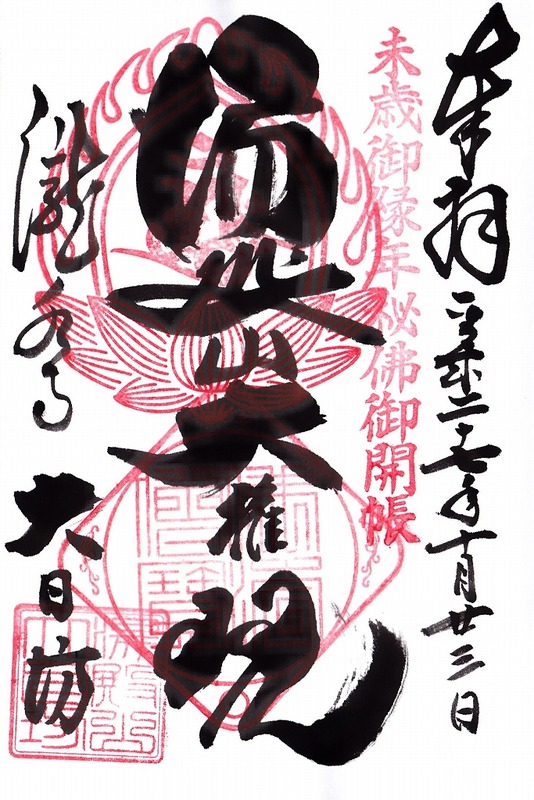 奉拝 平成二十七年十月廿三日
未歳御縁年秘佛御開帳
湯殿山大権現
瀧水寺 大日坊
湯殿山
大日坊